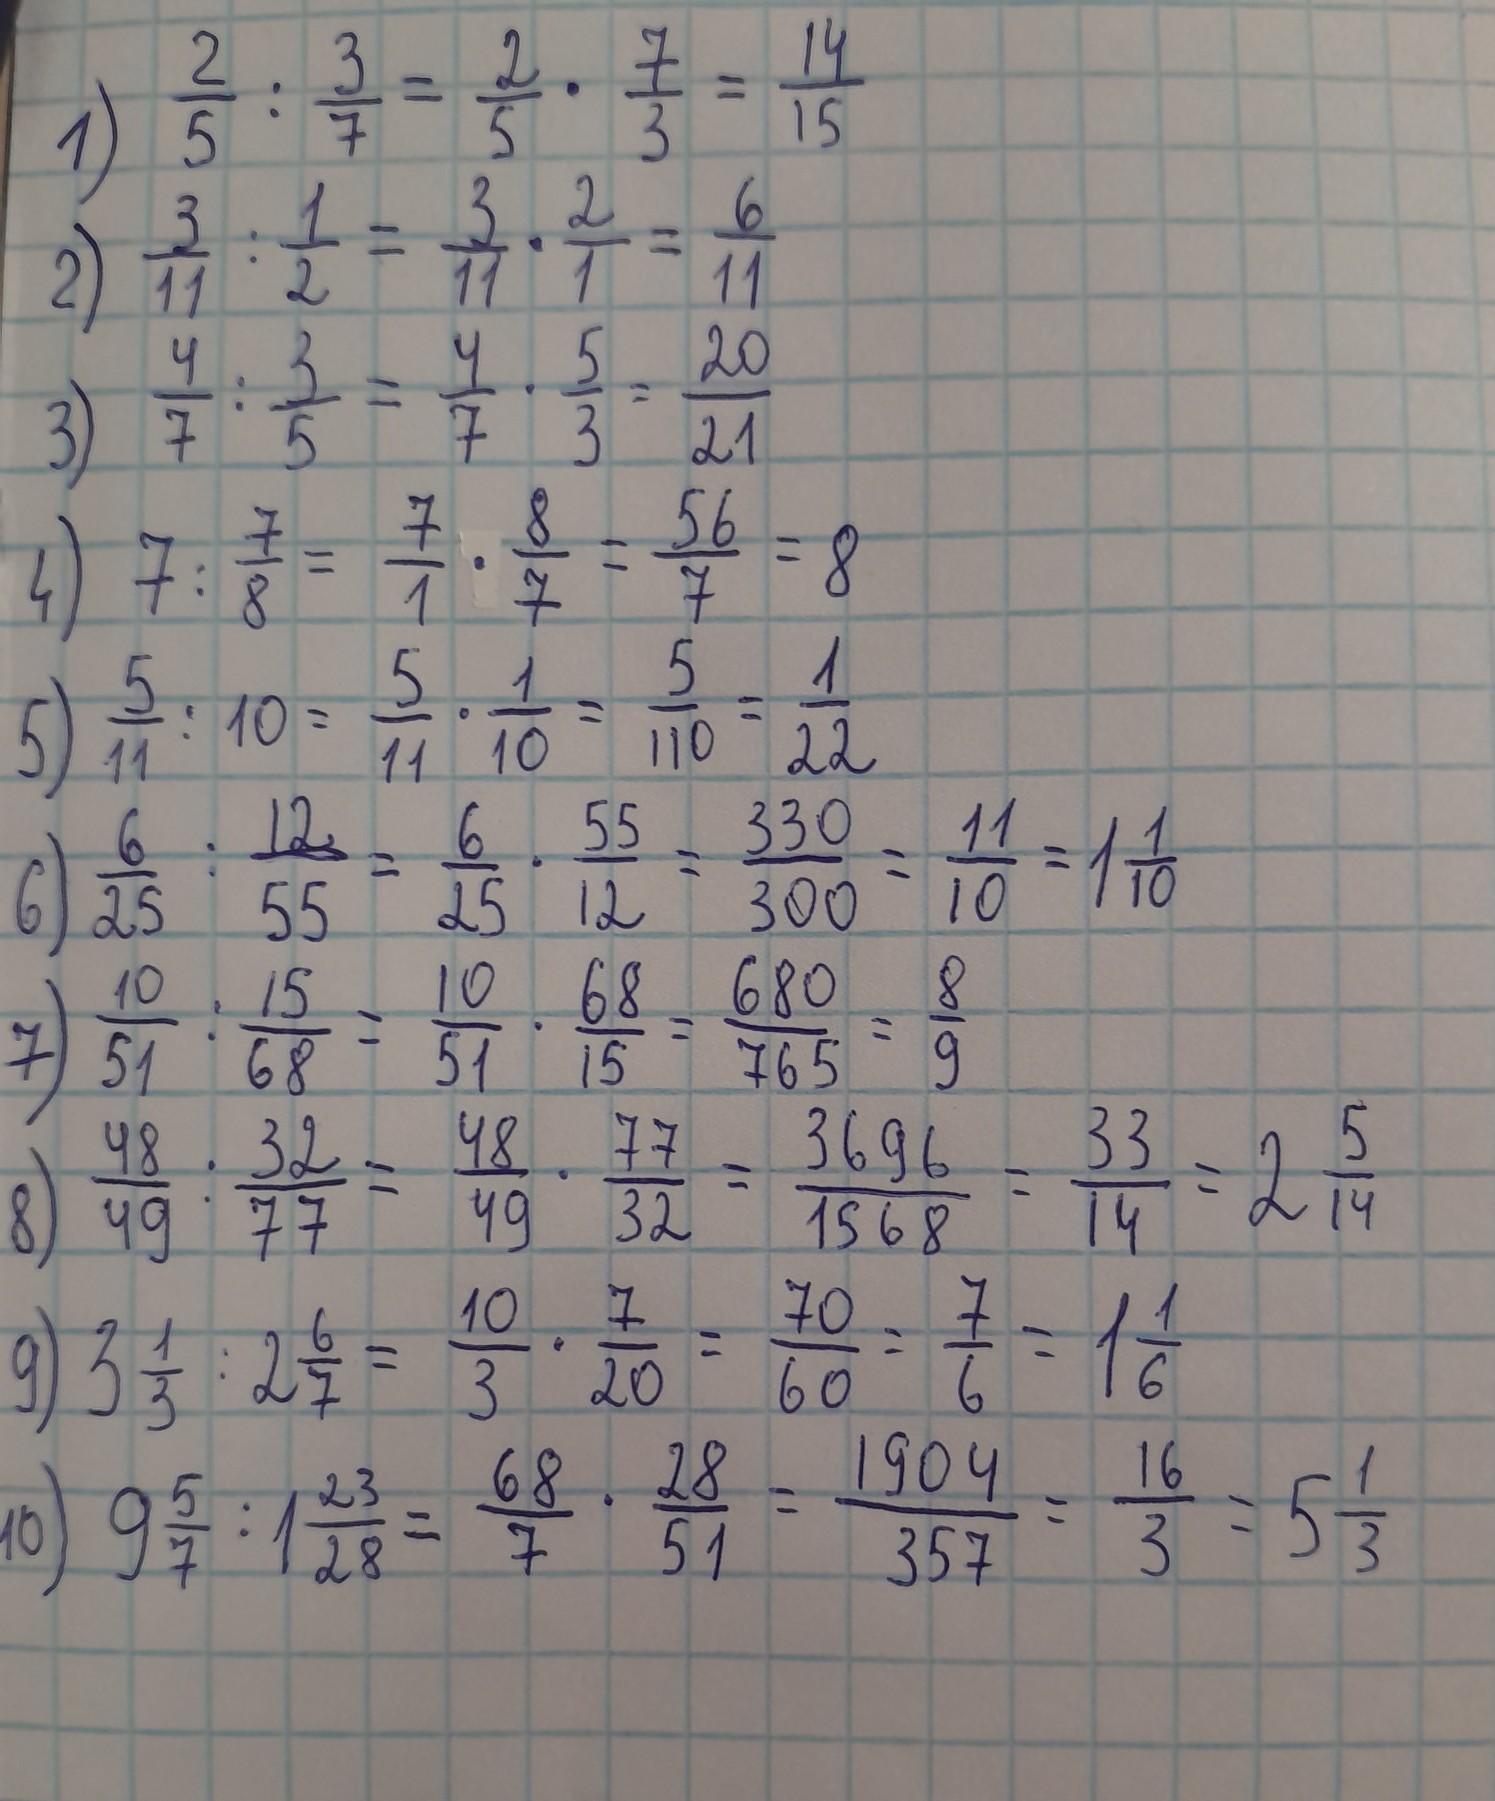 1) 2/5 : 3/7 = 2/5 · 7/3 = 14/15
2) 3/11 : 1/2 = 3/11 · 2/1 = 6/11
3) 4/7 : 3/5 = 4/7 · 5/3 = 20/21
4) 7 : 7/8 = 7/1 · 8/7 = 56/7 = 8
5) 5/11 : 10 = 5/11 · 1/10 = 5/110 = 1/22
6) 6/25 : 12/55 = 6/25 · 55/12 = 330/300 = 11/10 = 1 1/10
7) 10/51 : 15/68 = 10/51 · 68/15 = 680/765 = 8/9
8) 48/49 : 32/77 = 48/49 · 77/32 = 3696/1568 = 33/14 = 2 5/14
9) 3 1/3 : 2 6/7 = 10/3 · 7/20 = 70/60 = 7/6 = 1 1/6
10) 9 5/7 : 1 23/28 = 68/7 · 28/51 = 1904/357 = 16/3 = 5 1/3